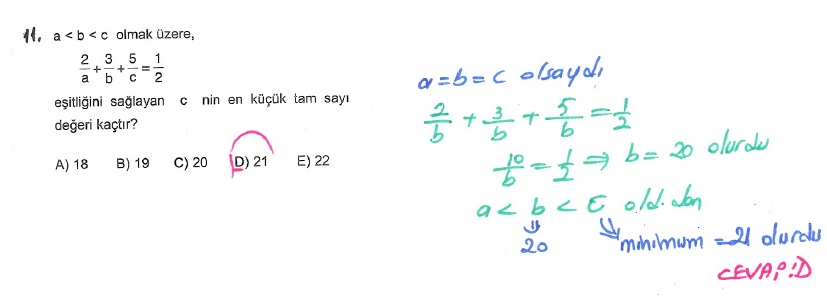 11. a < b < c olmak üzere,
2/a + 3/b + 5/c = 1/2
eşitliğini sağlayan c nin en küçük tam sayı
değeri kaçtır?
A) 18 B) 19 C) 20 D) 21 E) 22
a = b = c olsaydı
2/b + 3/b + 5/b = 1/2
10/b = 1/2 ⇒ b = 20 olurdu
a < b < c old.dan
⇓ 20 ⇘ minimum = 21 olurdu
CEVAP:D